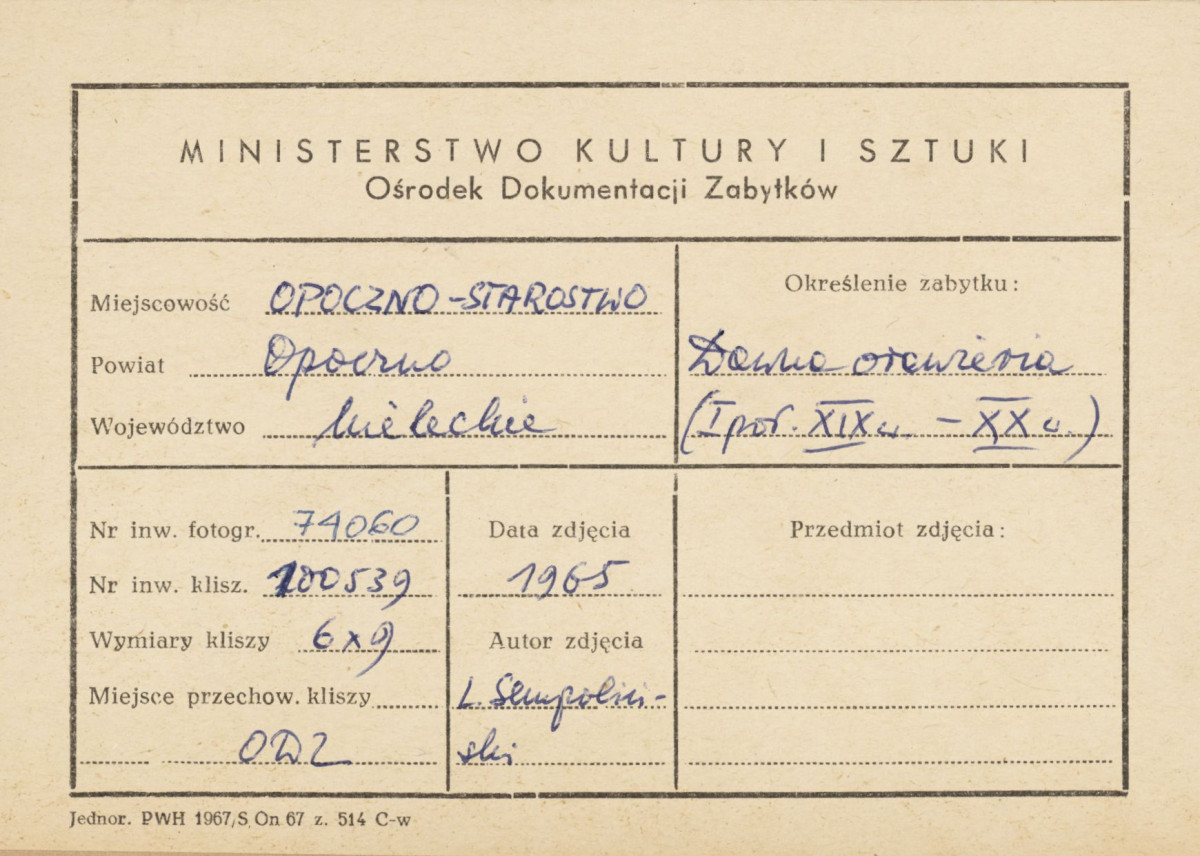 MINISTERSTWO KULTURY I SZTUKI
Ośrodek Dokumentacji Zabytków
Miejscowość OPOCZNO-STAROSTWO
Powiat Opoczno
Województwo kieleckie
Określenie zabytku:
Dawna oranżeria
(I poł. XIX w. – XX w.)
Nr inw. fotogr. 74060
Nr inw. klisz. 100539
Wymiary kliszy 6x9
Miejsce przechow. kliszy
ODZ
Data zdjęcia
1965
Autor zdjęcia
L. Sempoliń-
ski
Przedmiot zdjęcia:
Jednor. PWH 1967/S On 67 z. 514 C-w